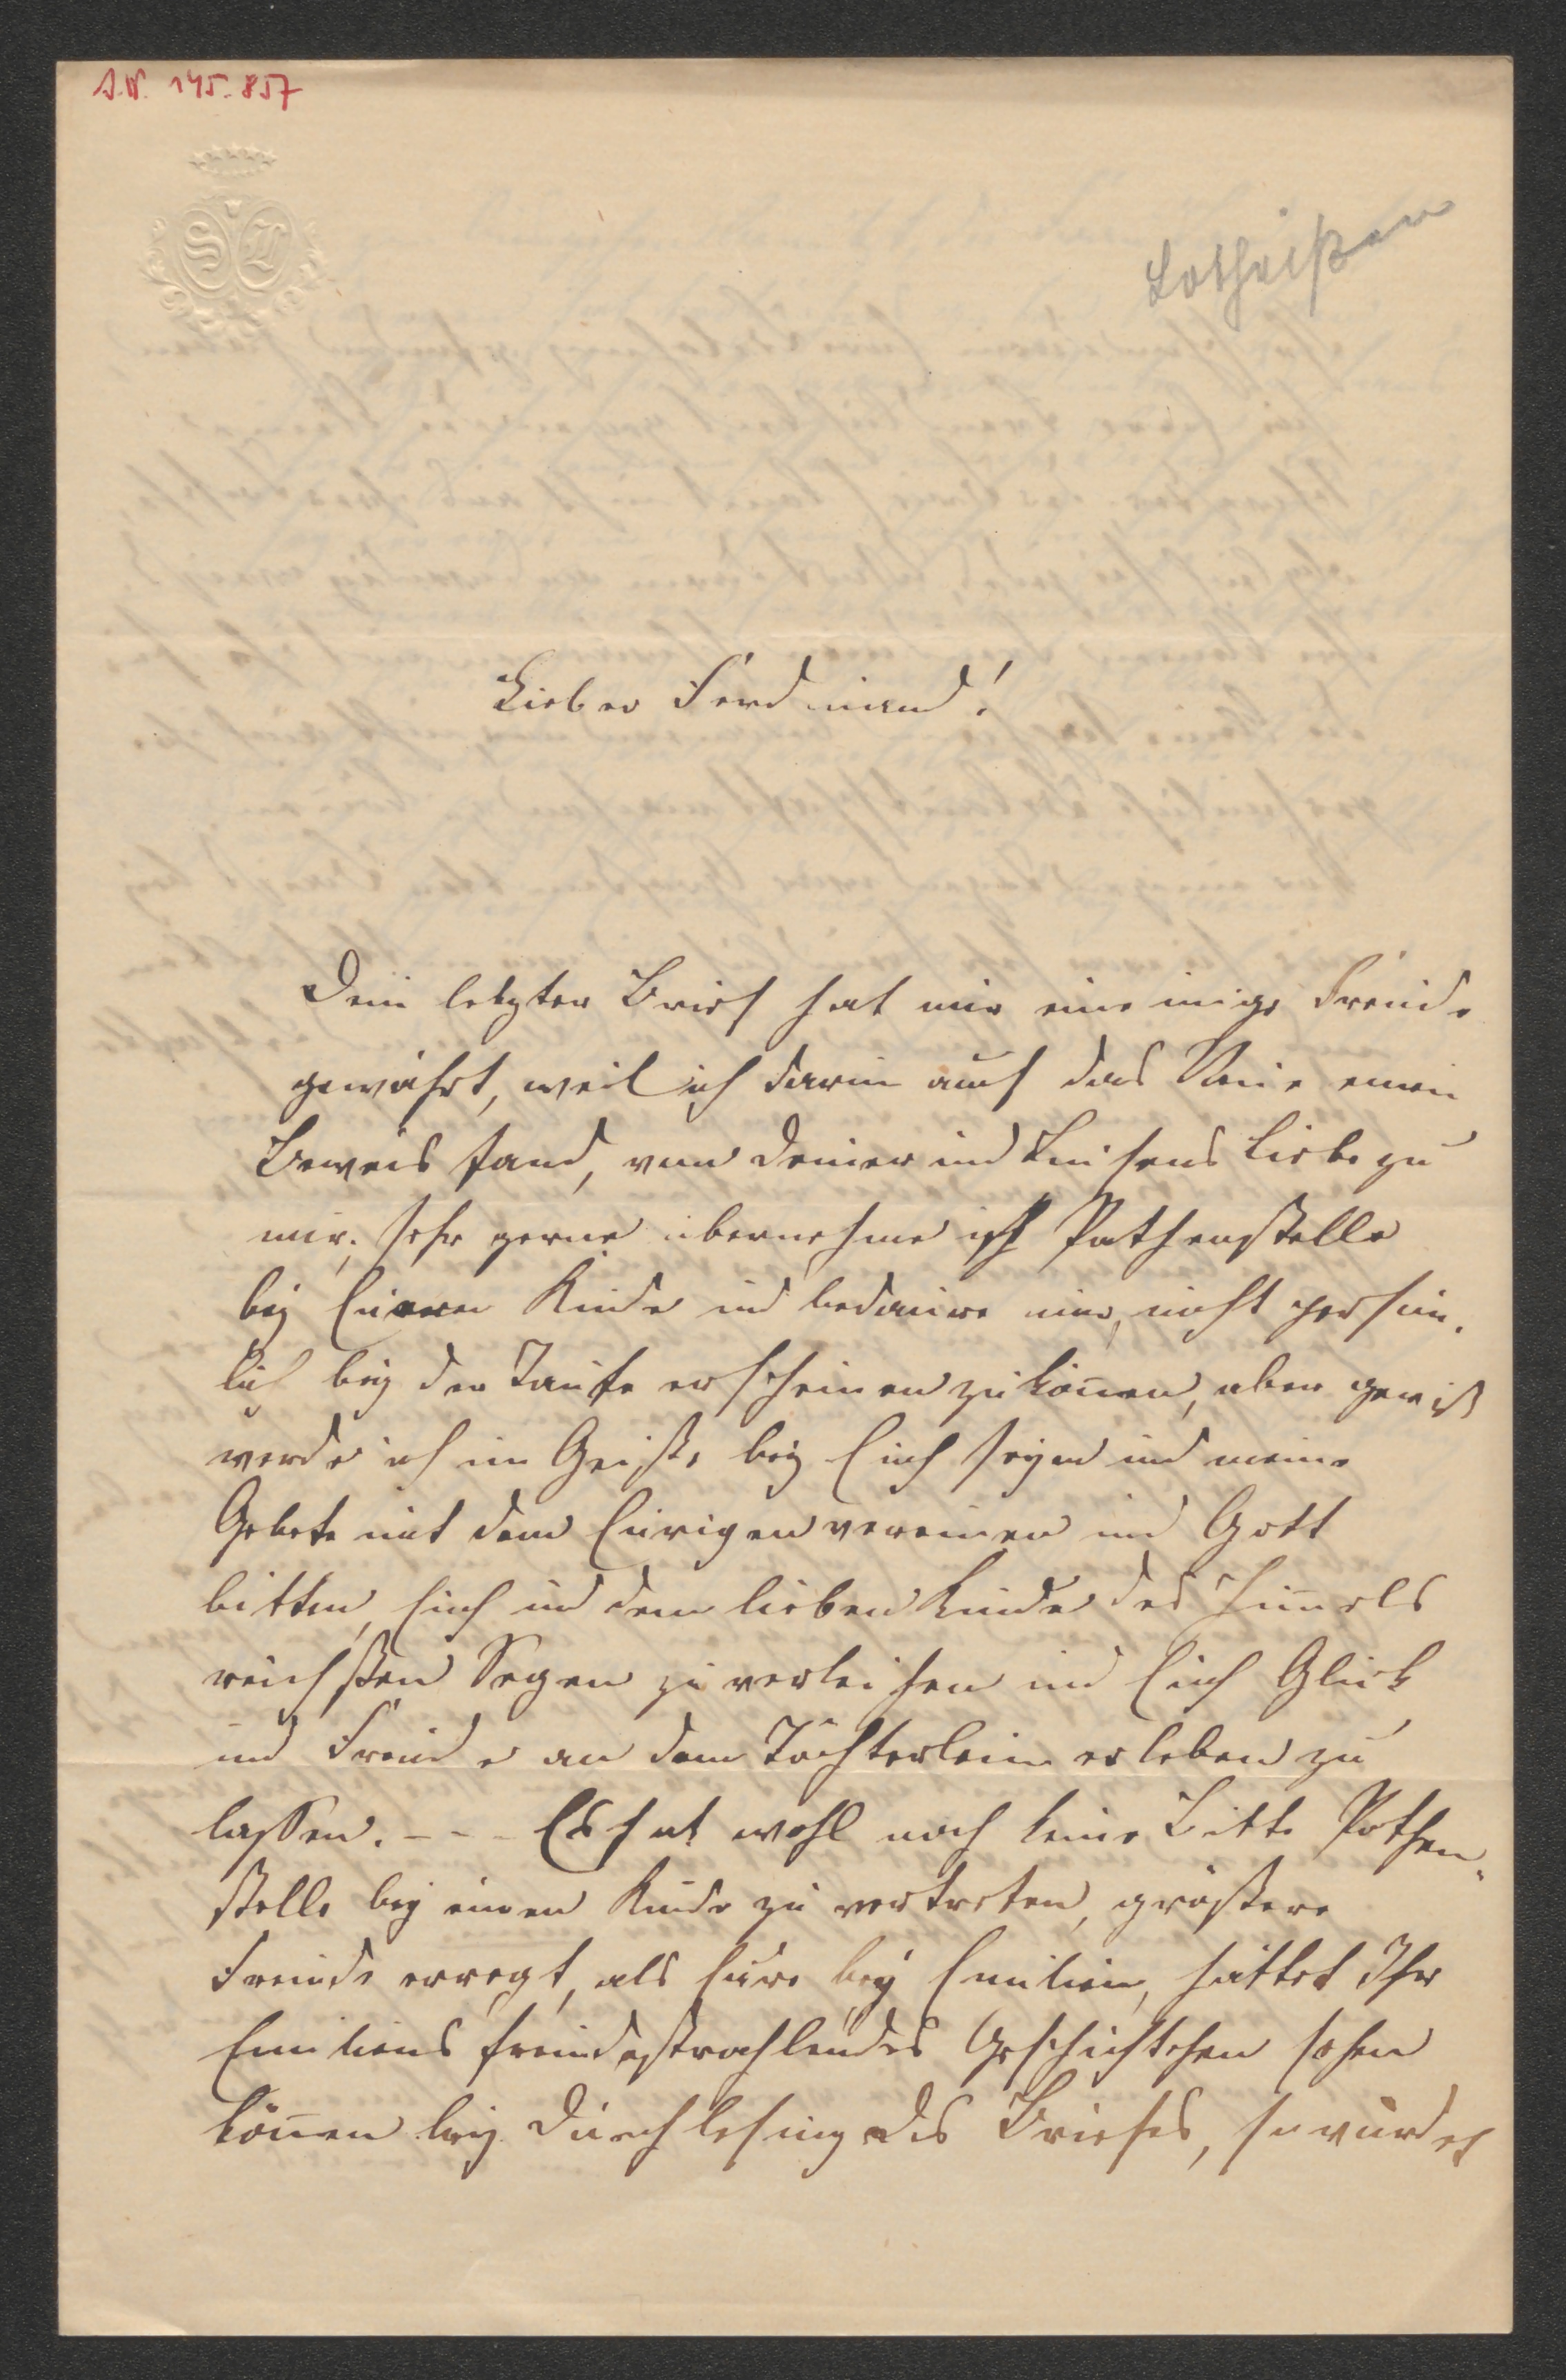 J.N. 145.857
SL
Lotheißen
Lieber Ferdinand!
Dein letzter Brief hat mir eine innige Freude
gewährt, weil ich darin auch das Neue einen
Beweis fand, von Deiner und Luisens Liebe zu
mir; sehr gerne übernehme ich Pathenstelle
bey Eurem Kinde und bedaure nur, nicht persön-
lich bey der Taufe erscheinen zu können, aber gewiß
werde ich im Geiste bey Euch seyn und meine
Gebete mit dem Eurigen vereinen und Gott
bitten, Euch und dem lieben Kinde des Himmels
reichsten Segen zu verleihen und Euch Glück
und Freude an dem Töchterlein erleben zu
lassen. - - - Es hat wohl noch keine Bitte Pathen-
stelle bey einem Kinde zu vertreten, größere
Freude erregt, als Eure bey Emilien, hättet Ihr
Emiliens freudestrahlendes Gesichtchen sehen
können bey Durchlesung des Briefes, so würdet